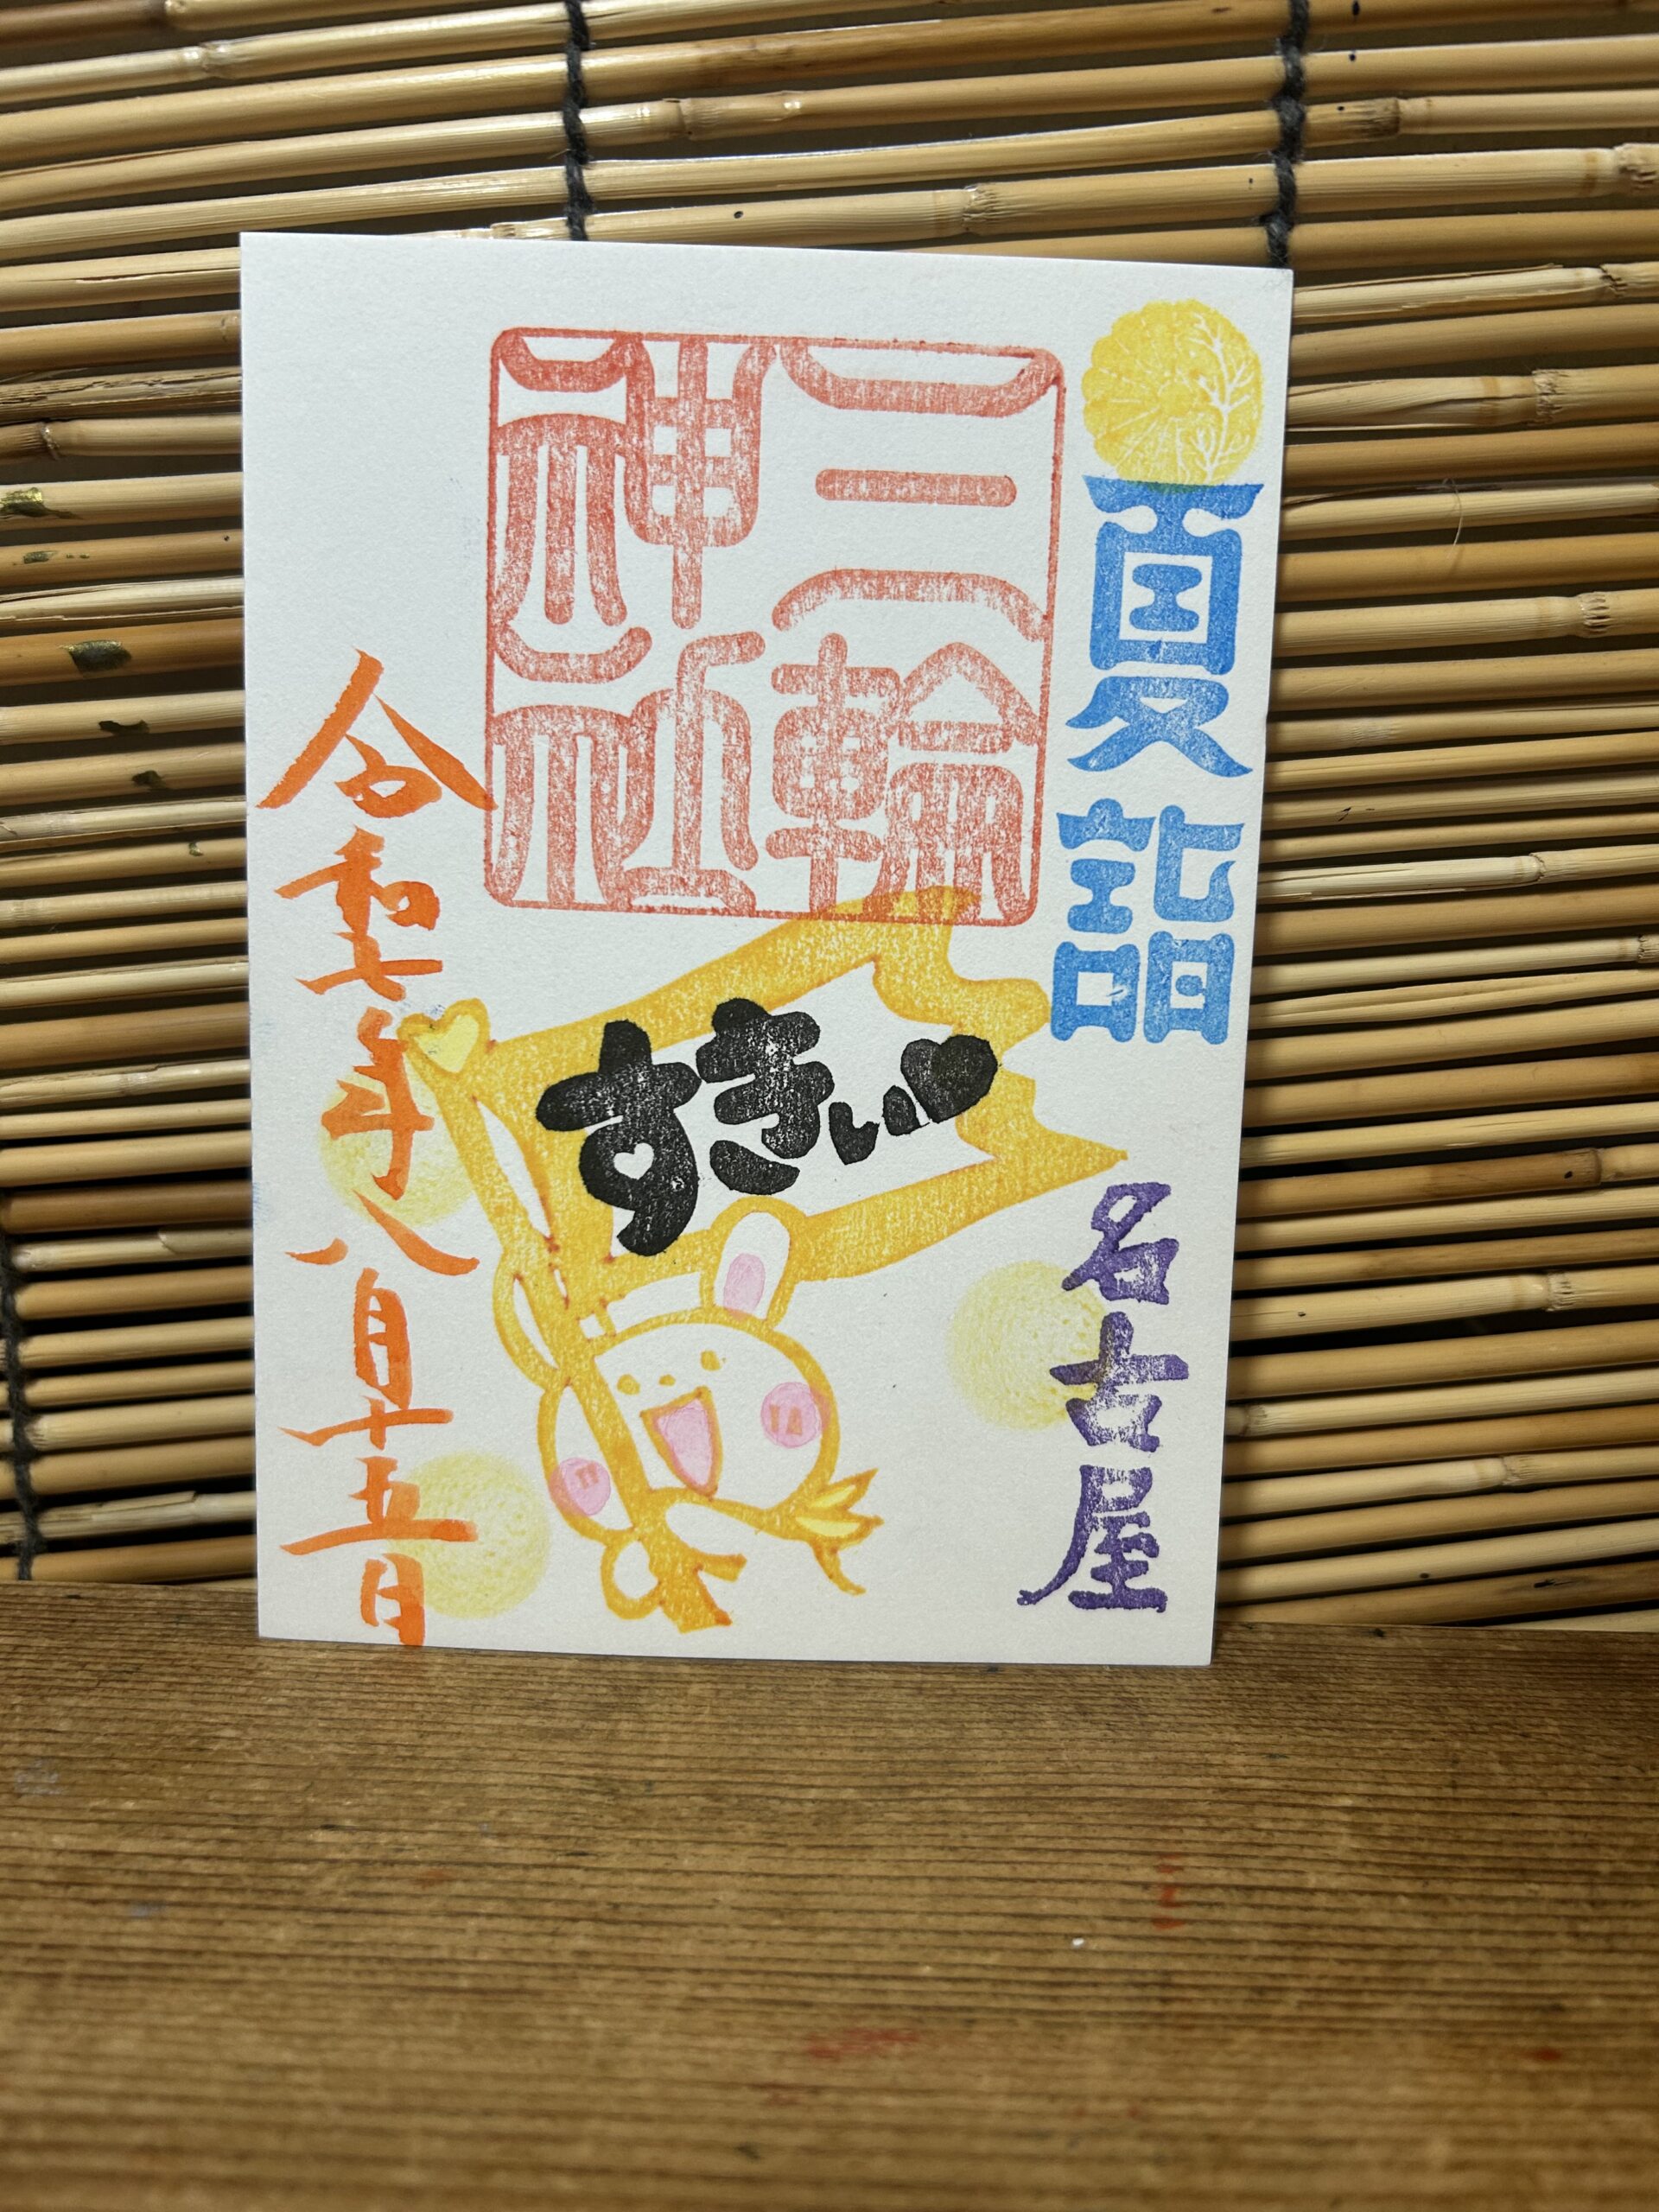 夏詣
名古屋
三輪
神社
すきぃ♥
令和七年八月十五日